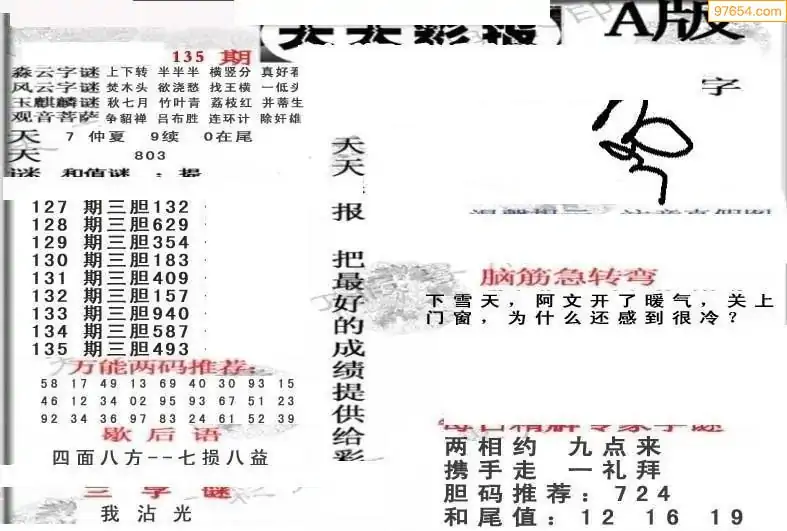 97654.com
天天彩报
A版
135 期
森云字谜 上下转 半半半 横竖分 真好看
风云字谜 焚木头 欲浇愁 找王横 一低头
玉麒麟谜 秋七月 竹叶青 荔枝红 并蒂生
观音菩萨 争貂禅 吕布胜 连环计 除奸雄
天 7 仲夏 9续 0在尾
天 803
谜 和值谜 :
127 期三胆132
128 期三胆629
129 期三胆354
130 期三胆183
131 期三胆409
132 期三胆157
133 期三胆940
134 期三胆587
135 期三胆493
万能两码推荐:
58 17 49 13 69 40 30 93 15
46 12 34 02 95 93 67 51 23
92 34 36 97 83 24 61 52 39
歇后语
四面八方--七损八益
三字谜
我沾光
天天报 把最好的成绩提供给彩
字
脑筋急转弯
下雪天，阿文开了暖气，关上
门窗，为什么还感到很冷？
每日精解专家字谜
两相约 九点来
携手走 一礼拜
胆码推荐: 724
和尾值: 12 16 19